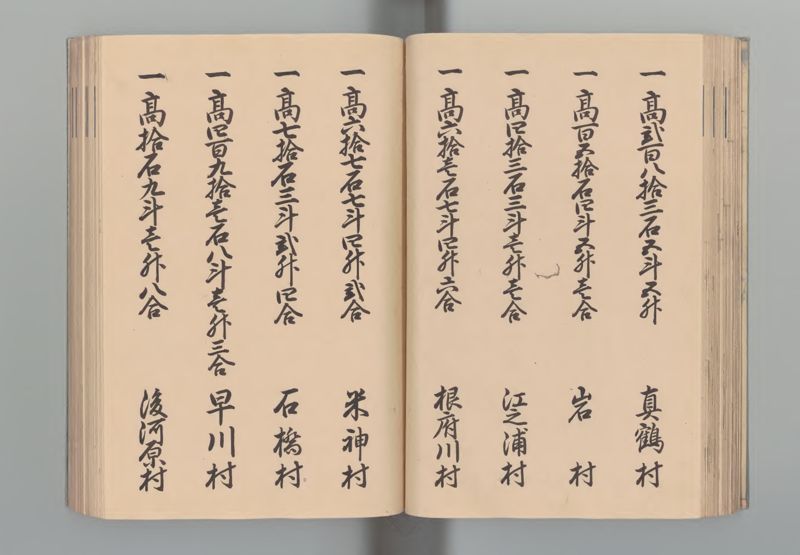 一 高弐百八拾三石五斗五升 真鶴村
一 高百五拾石四斗五升壱合 岩村
一 高四拾三石三斗壱升壱合 江之浦村
一 高六拾壱石七斗四升六合 根府川村
一 高六拾七石七斗四升弐合 米神村
一 高七拾石三斗弐升四合 石橋村
一 高四百九拾壱石八斗壱升三合 早川村
一 高拾石九斗壱升八合 湯河原村